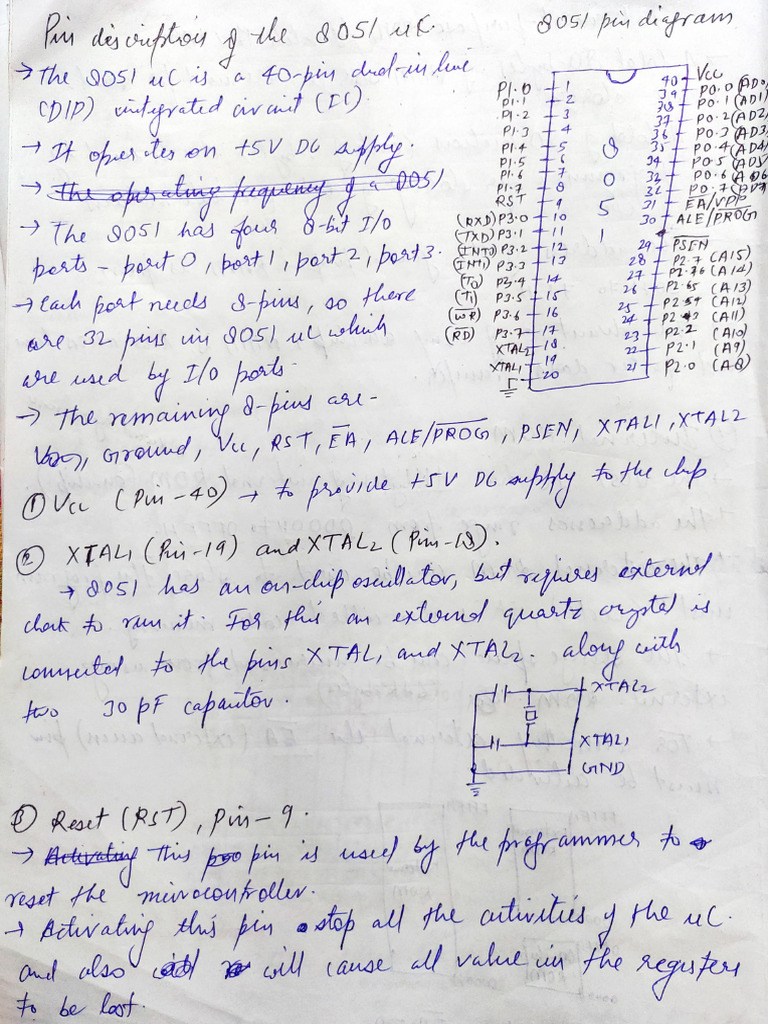 Pin description of the 8051 uC.
8051 pin diagram
→ The 8051 uC is a 40-pin dual-in line
(DIP) integrated circuit (IC).
→ It operates on +5V DC supply.
→ the operating frequency of a 8051
→ The 8051 has four 8-bit I/o
ports - port 0, port 1, port 2, port 3.
→ Each port needs 8-pins, so there
are 32 pins in 8051 uC which
are used by I/o ports.
→ The remaining 8-pins are-
Ground, Vcc, RST, E̅A̅, ALE/P̅R̅O̅G̅, PSEN, XTAL1, XTAL2
P1.0 1
P1.1 2
P1.2 3
P1.3 4
P1.4 5
P1.5 6
P1.6 7
P1.7 8
RST 9
(RXD) P3.0 10
(TXD) P3.1 11
(I̅N̅T̅0̅) P3.2 12
(I̅N̅T̅1̅) P3.3 13
(T0) P3.4 14
(T1) P3.5 15
(W̅R̅) P3.6 16
(R̅D̅) P3.7 17
XTAL2 18
XTAL1 19
20
8
0
5
1
40 Vcc
39 P0.0 (AD0)
38 P0.1 (AD1)
37 P0.2 (AD2)
36 P0.3 (AD3)
35 P0.4 (AD4)
34 P0.5 (AD5)
33 P0.6 (AD6)
32 P0.7 (AD7)
31 E̅A̅/VPP
30 ALE/P̅R̅O̅G̅
29 P̅S̅E̅N̅
28 P2.7 (A15)
27 P2.6 (A14)
26 P2.5 (A13)
25 P2.4 (A12)
24 P2.3 (A11)
23 P2.2 (A10)
22 P2.1 (A9)
21 P2.0 (A8)
① Vcc (Pin-40) → to provide +5V DC supply to the chip
② XTAL1 (Pin-19) and XTAL2 (Pin-18).
→ 8051 has an on-chip oscillator, but requires external
clock to run it. For this an external quartz crystal is
connected to the pins XTAL1 and XTAL2. along with
two 30 pF capacitor.
XTAL2
XTAL1
GND
③ Reset (RST), Pin-9.
→ Activating this pin is used by the programmer to
reset the microcontroller.
→ Activating this pin stop all the activities of the uC.
and also will cause all value in the registers
to be lost.